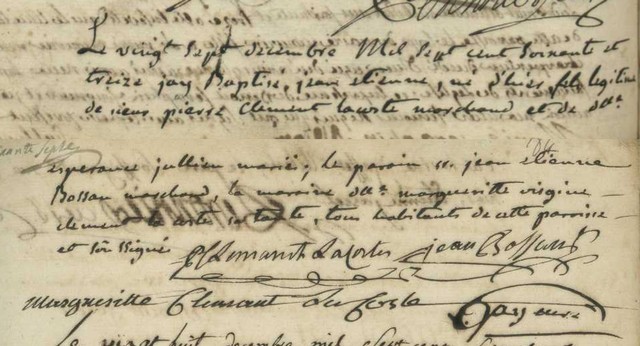 Le vingt sept decembre Mil sept cent soixante et
treize jay Baptisé, jean etienne, né d'hier, fils legitime
de sieur pierre Clement lacoste marchand et de dlle
esperance jullien mariés, le parain sr jean etienne
Bossan marchand, la maraine dlle margueritte virginie
clement la coste sa tante, tous habitants de cette paroisse
et son signé
P Clemant Lacoste jean Bossant
margueritte Clemant La Coste
Le vingt huit decembre mil sept cent